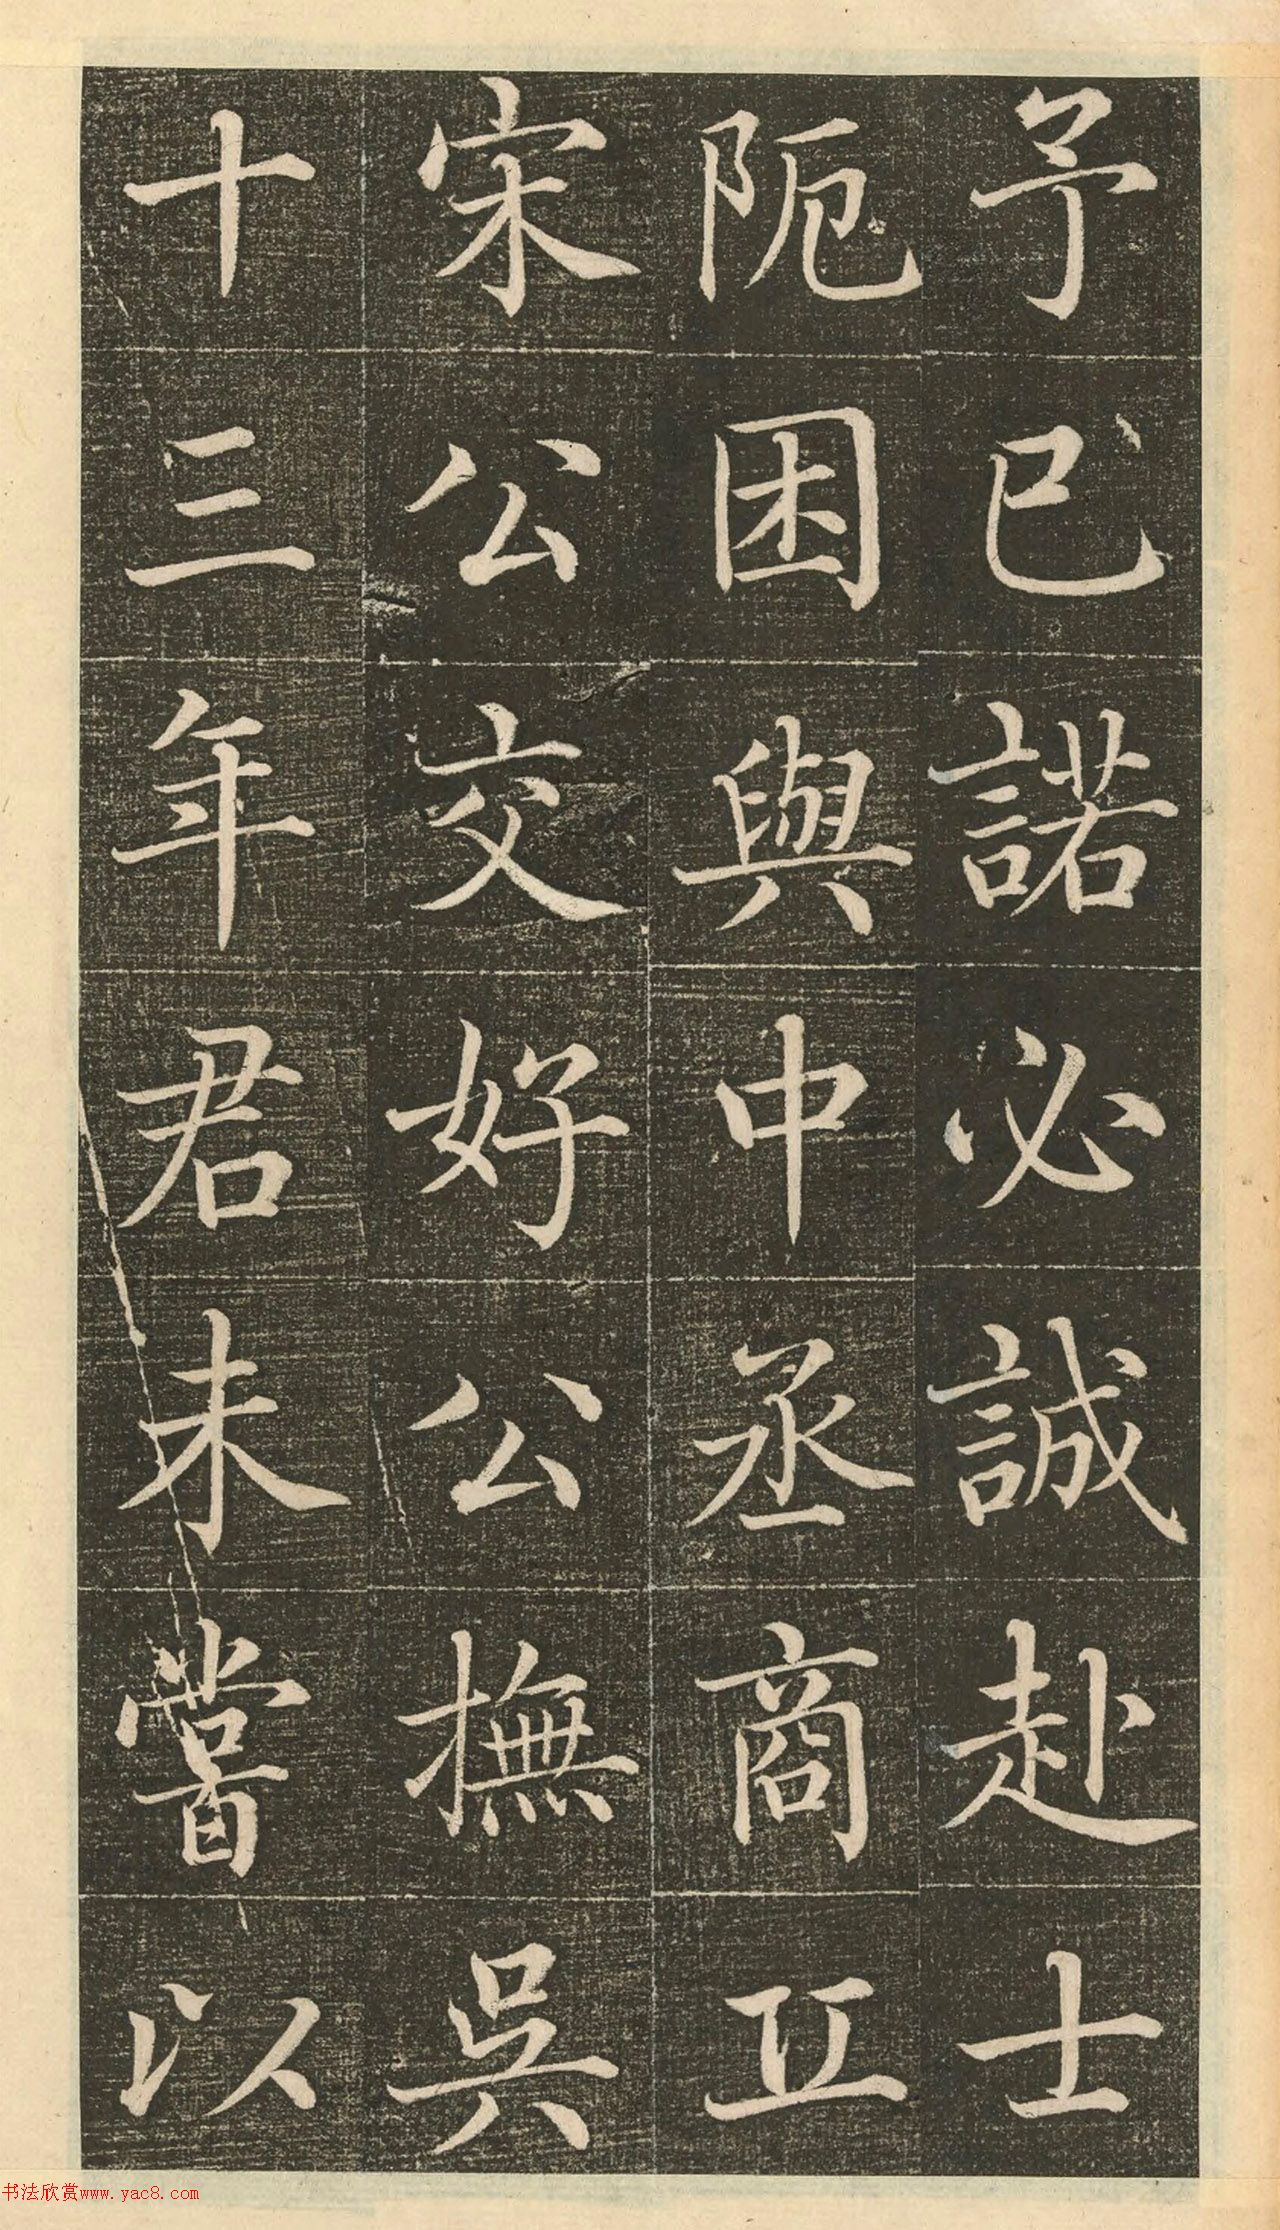 予已諾必誠赴士
阨困與中丞商丘
宋公交好公撫吳
十三年君未嘗以
书法欣赏www.yac8.com